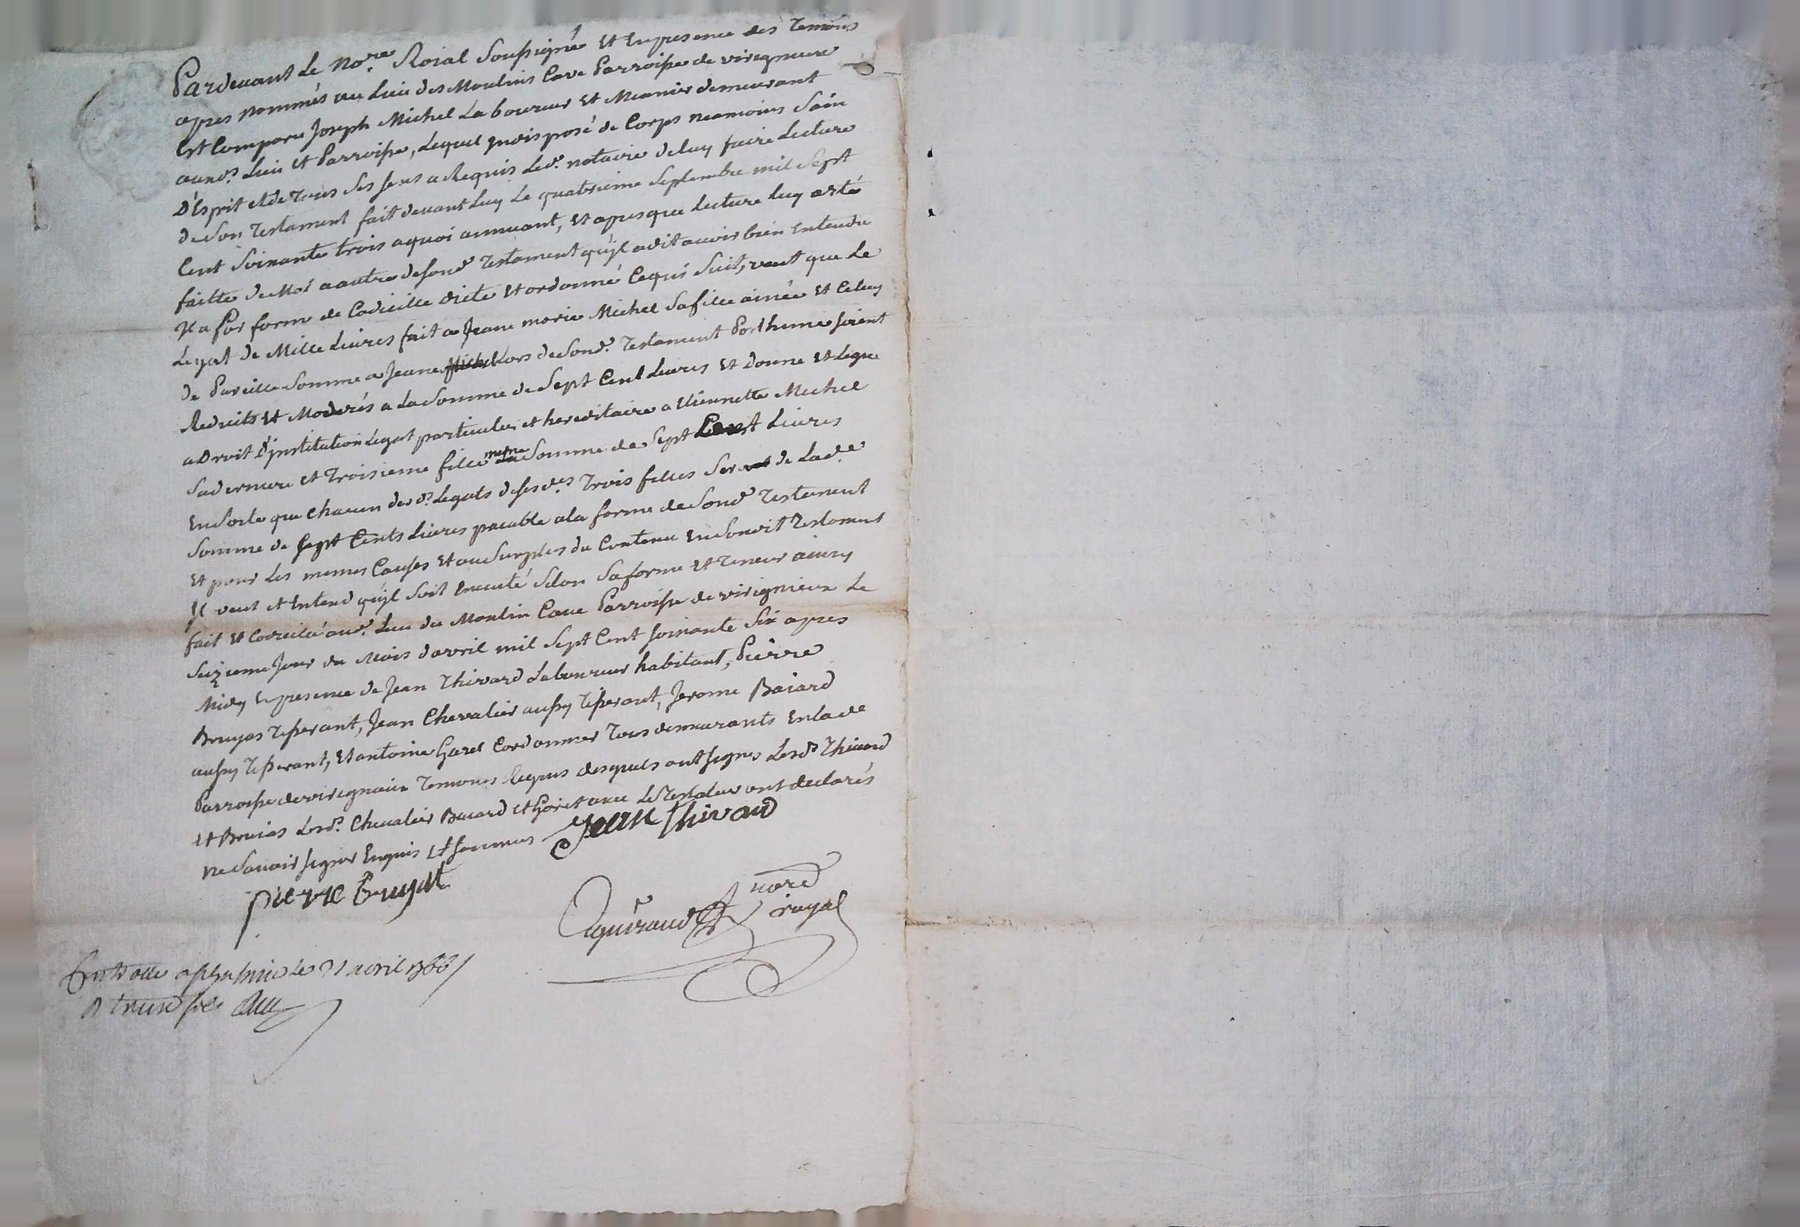 Pardevant Le no.re Roial Soussigné Et En presence des Temoins
apres nommés au Lieu des Moulins Cave Parroisse de virigneux
Est Comparu Joseph Michel Laboureur Et Meunier demeurant
aud. Lieu et Parroisse, Lequel jndisposé de Corps neamoins Sain
D'Esprit et de Tous Ses Sens a Requis Led. notaire de luy faire Lecture
de Son Testament fait devant Luy Le quatrieme Septembre mil Sept
Cent Soixante trois a quoi annuant, Et apres que Lecture luy a Eté
faitte de Mot a autre de Sond. Testament qu'jl a dit avoir bien Entendu
jl a Par forme de Codicille dicté Et ordonné Ce qui Suit, veut que Le
Legat de Mille Livres fait a Jeane marie Michel Sa fille ainée Et Celuy
de Pareille Somme a Jeane Lors de Sond. Testament Posthume soient
Reduits Et Moderés a La Somme de Sept Cent Livres Et Donne Et Legue
a Droit D'jnstitution Legat particulier et hereditaire a Etiennette Michel
Sa derniere et Troisieme fille meme La Somme de Sept Cent Livres
En Sorte que Chacun des d. Legats de Ses d.es Trois filles Sera de Lad.e
Somme de Sept Cents Livres paiable a la forme de Sond. Testament
Et pour Les memes Causes Et au Surplus du Contenu En Sondit Testament
jl veut et Entend qu'jl Soit Executé Selon Sa forme Et Teneur ainsy
fait Et Codicillé aud. Lieu du Moulin Cave Parroisse de virignieux Le
Seizieme Jour du Mois d'avril mil Sept Cent Soixante Six apres
Midy En presence de Jean Thivard Laboureur habitant, Pierre
Bruyas Tisserant, Jean Chevalier aussy Tisserant, Jerome Baiard
aussy Tisserant, Et antoine Goret Cordonnier Tous demeurants En lad.e
Parroisse de virigneux Temoins Requis desquels ont signés Lesd. Thivard
et Bruias Lesd. Chevalier Baiard et Goret avec Le Testateur ont declarés
ne Savoir signer Enquis Et Sommés Jean thivard
pierre Bruyat
no.re
royal
le 21 avril 1766